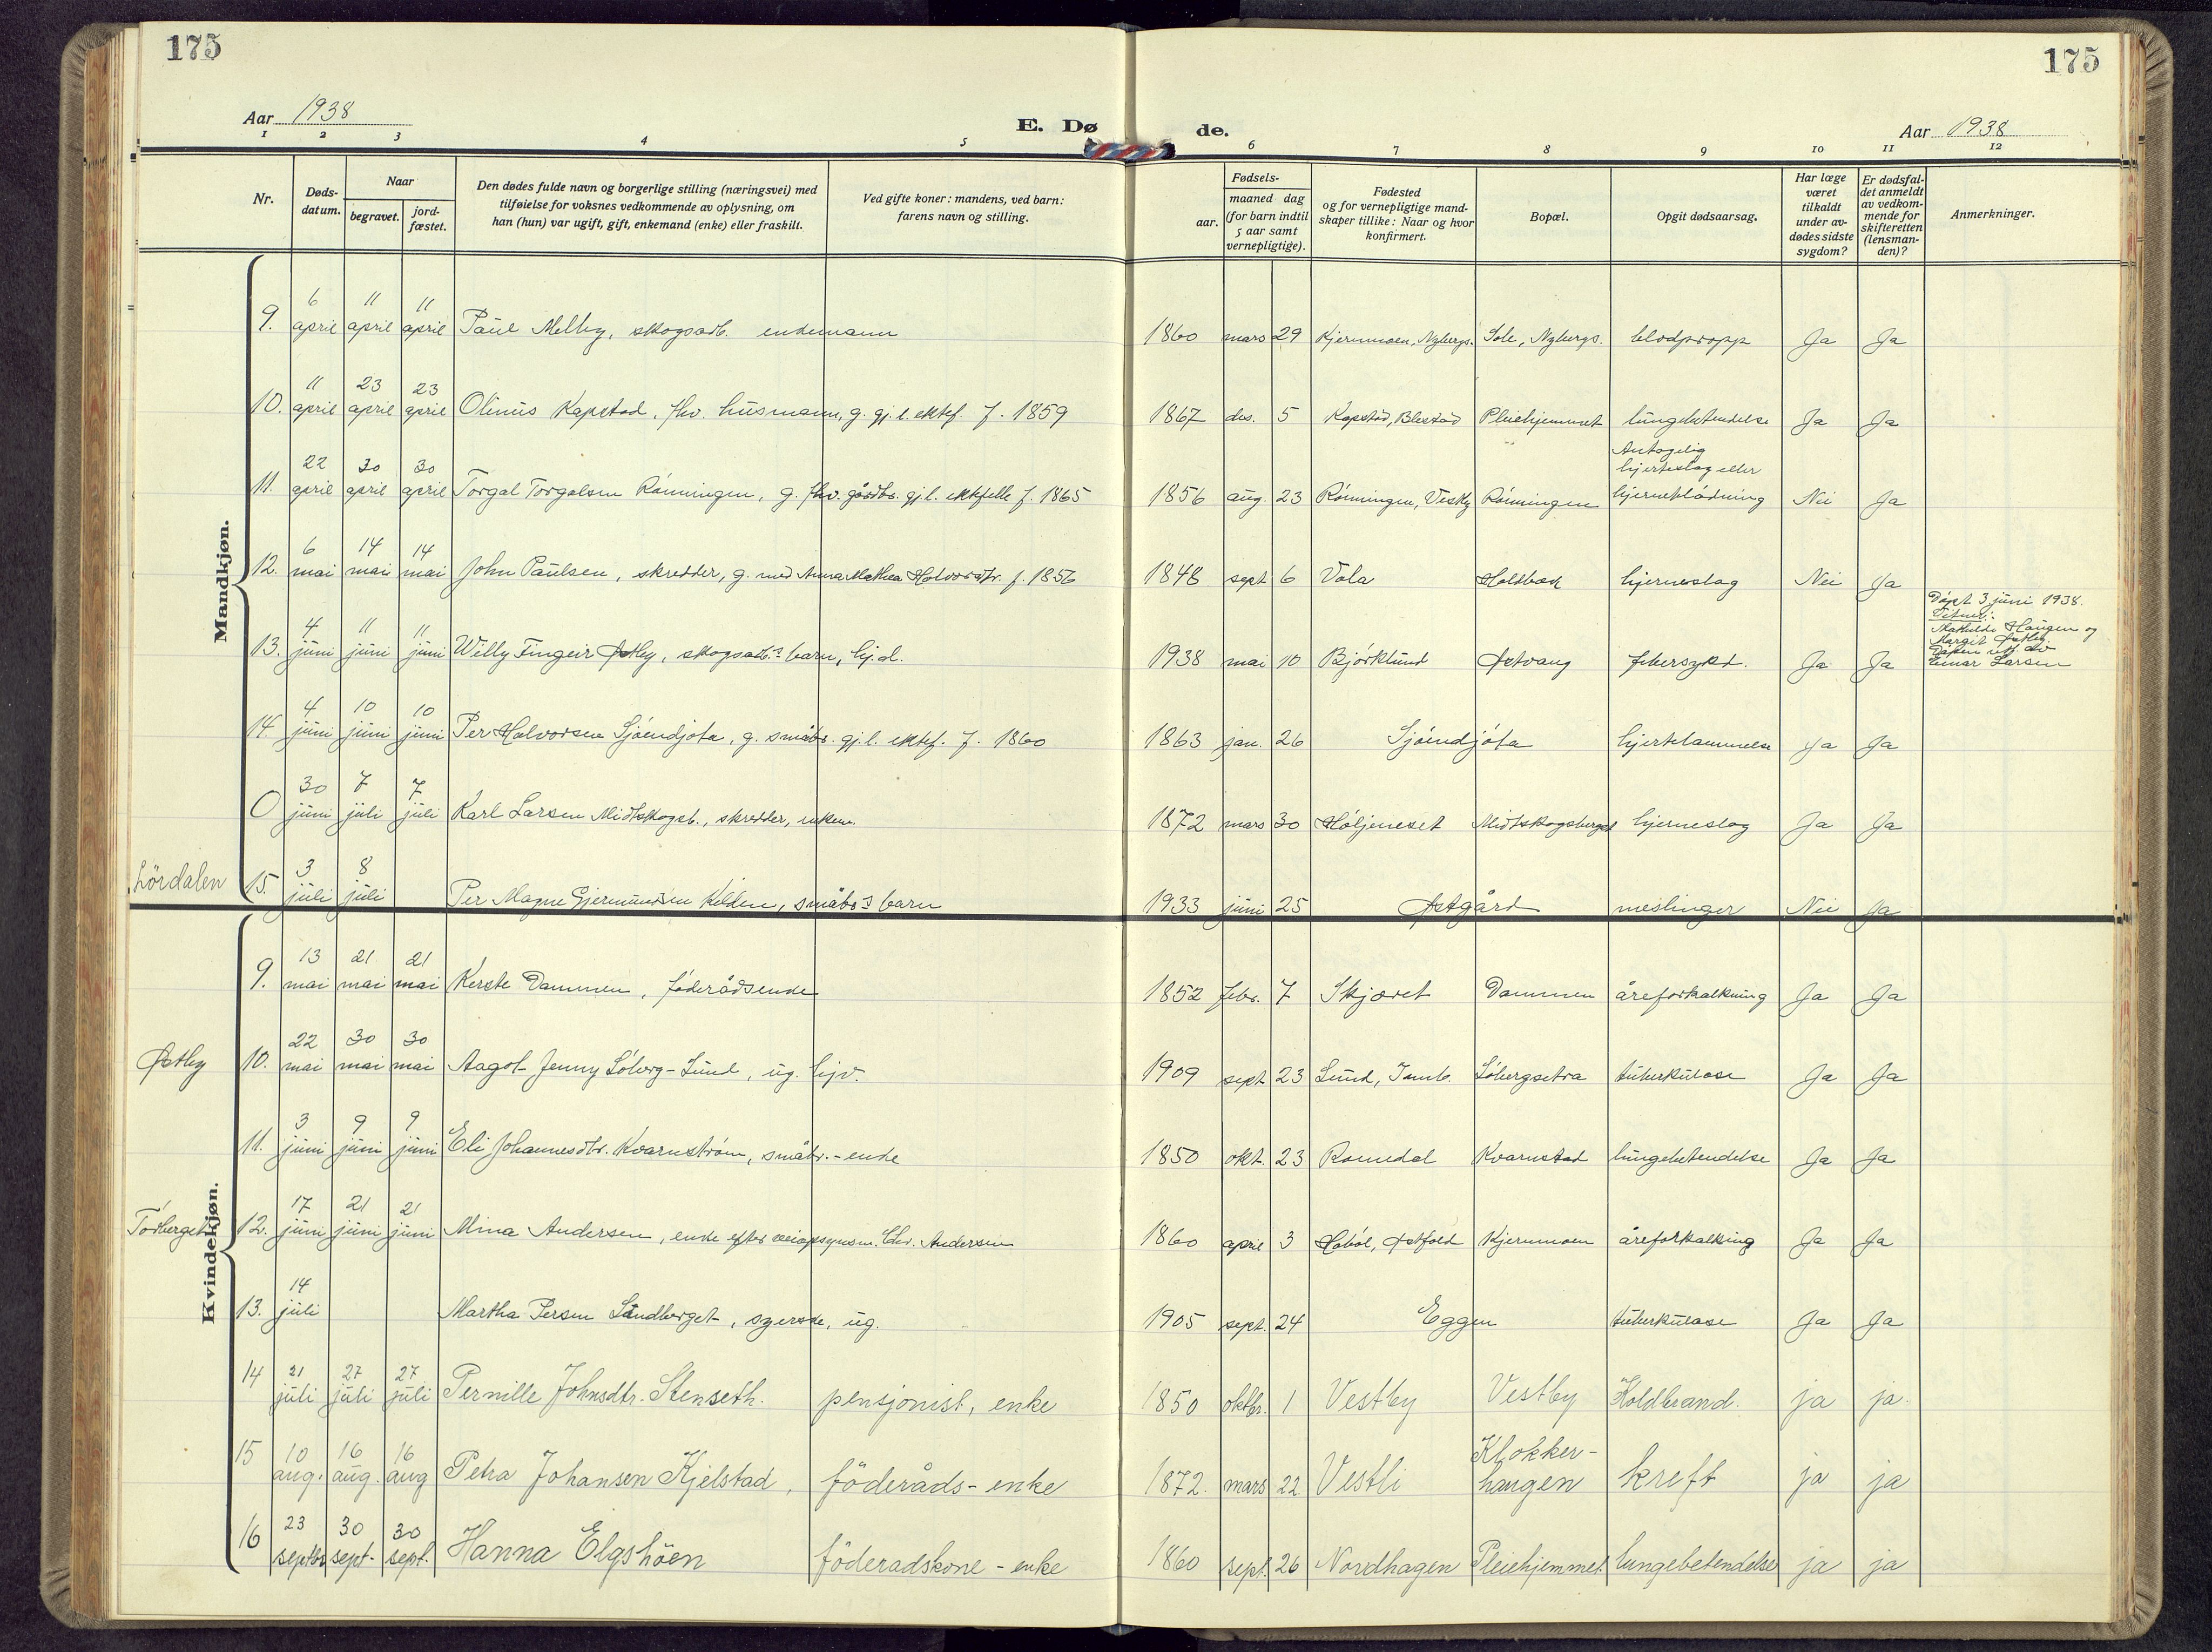 175
175
Aar 1938
E. Dø de.
Aar 1938
1 2 3 4 5 6 7 8 9 10 11 12
Nr.
Døds-datum.
Naar
begravet.
jord-fæstet.
Den dødes fulde navn og borgerlige stilling (næringsvei) med
tilføielse for voksnes vedkommende av oplysning, om
han (hun) var ugift, gift, enkemand (enke) eller fraskilt.
Ved gifte koner: mandens, ved barn:
farens navn og stilling.
Fødsels-
aar.
maaned dag
(for barn indtil
5 aar samt
vernepligtige).
Fødested
og for vernepligtige mand-
skaper tillike: Naar og hvor
konfirmert.
Bopæl.
Opgit dødsaarsag.
Har læge
været
tilkaldt
under av-
dødes sidste
sygdom?
Er dødsfal-
det anmeldt
av vedkom-
mende for
skifteretten
(lensman-
den)?
Anmerkninger.
Mandkjøn.
9. 6 april 11 april 11 april Paul Melby, skogsarb. enkemann 1860 mars 29 Kjernmoen, Nybergs. Sole, Nybergs. blodpropp Ja Ja
10. 11 april 23 april 23 april Olinus Kapstad, fhv. husmann, g. gj.l. ektef. f. 1859 1867 des. 5 Kapstad, Blestad Pleiehjemmet lungebetendelse Ja Ja
11. 22 april 30 april 30 april Torgal Torgalsen Rönningen, g. fhv. gårdbr. gj.l. ektefelle f. 1865 1856 aug. 23 Rönningen, Vestby Rönningen Antagelig hjerteslag eller hjerneblödning Nei Ja
12. 6 mai 14 mai 14 mai John Paulsen, skredder, g. med Anna Mathea Halvorsdtr. f. 1856 1848 sept 6 Vola Holdbæk hjerneslag Nei Ja
13. 4 juni 11 juni 11 juni Willy Fingeir Østby, skogsarb.s barn, hj.d. 1938 mai 10 Björklund Østvang febersykd. Ja Ja
Döpt 3 juni 1938.
Mathilde Haugen og
Margit Østby.
Dåpen utf. av
Einar Larsen
14. 4 juni 10 juni 10 juni Per Halvorsen Sjöendjota, g. småbr. gj.l. ektef. f. 1860 1863 jan. 26 Sjöendjóta hjertelammelse Ja Ja
0 30 juni 7 juli 7 juli Karl Larsen Midtskogsb., skredder, enkem. 1872 mars 30 Höljeneset Midtskogsberget hjerneslag Ja Ja
Lördalen 15. 3 juli 8 juli Per Magne Gjermundsen Kilden, småbr.s barn 1933 juni 25 Østgård meslinger Nei Ja
Kvindekjøn.
9. 13 mai 21 mai 21 mai Kerste Dammen, föderådsenke 1852 febr. 7 Skjæret Dammen åreforkalkning Ja Ja
Østby 10. 22 mai 30 mai 30 mai Aagot Jenny Söberg-Lund, ug. hjv. 1909 sept 23 Lund, Jamb. Söbergsetra tuberkulose Ja Ja
11. 3 juni 9 juni 9 juni Eli Johannesdtr. Kvarnström, småbr.-enke 1850 okt. 23 Romedal Kvarnstad lungebetendelse Ja Ja
Törberget 12. 17 juni 21 juni 21 juni Mina Andersen, enke efter veiopsynsm. Chr. Andersen 1860 april 3 Hobøl, Østfold Kjernmoen åreforkalkning Ja Ja
13. 14 juli Martha Persen Sundberget, syerske, ug. 1905 sept. 24 Eggen tuberkulose Ja Ja
14 21 juli 27 juli 27 juli Pernille Johnsdtr. Stenseth. pensjonist, enke 1850 oktbr. 1 Vestby Vestby Koldbrand. ja ja.
15 10 aug. 16 aug. 16 aug Petra Johansen Kjelstad, föderåds-enke 1872. mars 22 Vestli Klokker-haugen kreft ja ja
16 23 septbr 30 sept. 30 sept. Hanna Elgshöen föderadskone - enke 1860 sept. 26 Nordhagen Pleiehjemmet. lungebetendelse ja ja